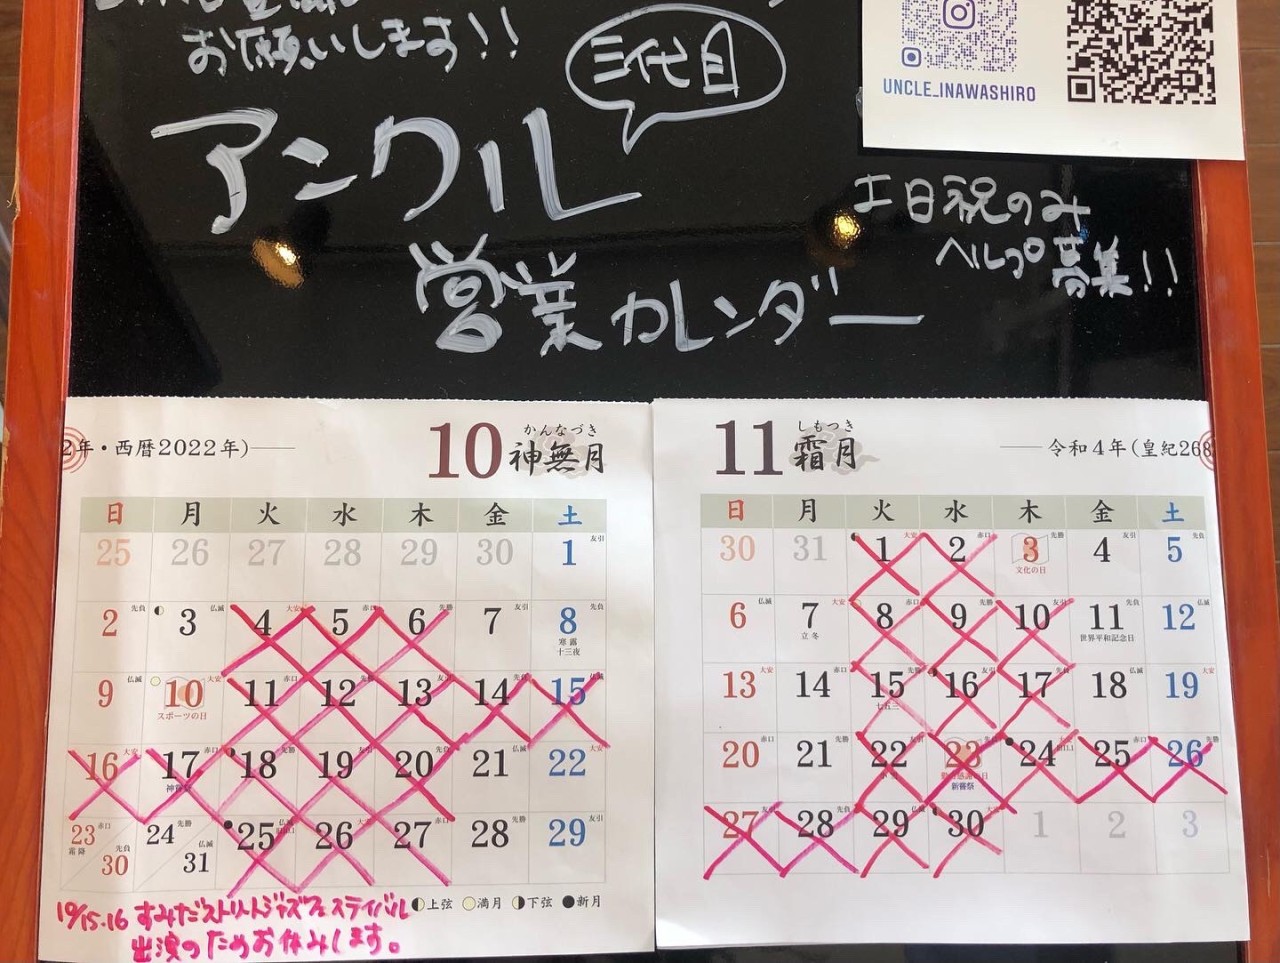 お願いします!!
三代目
アンクル
営業カレンダー
UNCLE_INAWASHIRO
土日祝のみ
ヘルプ募集!!
2年・西暦2022年)
10 神無月
かんなづき
日 月 火 水 木 金 土
25 26 27 28 29 30 1 友引
2 先負 3 仏滅 4 大安 5 赤口 6 先勝 7 友引 8 先負
寒露
十三夜
9 仏滅 10 大安 11 赤口 12 先勝 13 友引 14 先負 15 仏滅
スポーツの日
16 大安 17 赤口 18 先勝 19 友引 20 先負 21 仏滅 22 大安
23 赤口 24 先勝 25 仏滅 26 大安 27 赤口 28 先勝 29 友引
霜降 30 先負 31 仏滅
上弦 満月 下弦 新月
10/15.16 すみだストリートジャズフェスティバル
出演のためお休みします。
11 霜月
しもつき
令和4年(皇紀268
日 月 火 水 木 金 土
30 31 1 大安 2 赤口 3 先勝 4 友引 5 先負
文化の日
6 仏滅 7 大安 8 赤口 9 先勝 10 友引 11 先負 12 仏滅
立冬 世界平和記念日
13 大安 14 赤口 15 先勝 16 友引 17 先負 18 仏滅 19 大安
七五三
20 赤口 21 先勝 22 友引 23 先負 24 大安 25 赤口 26 先勝
新嘗祭
27 友引 28 先負 29 仏滅 30 大安 1 2 3